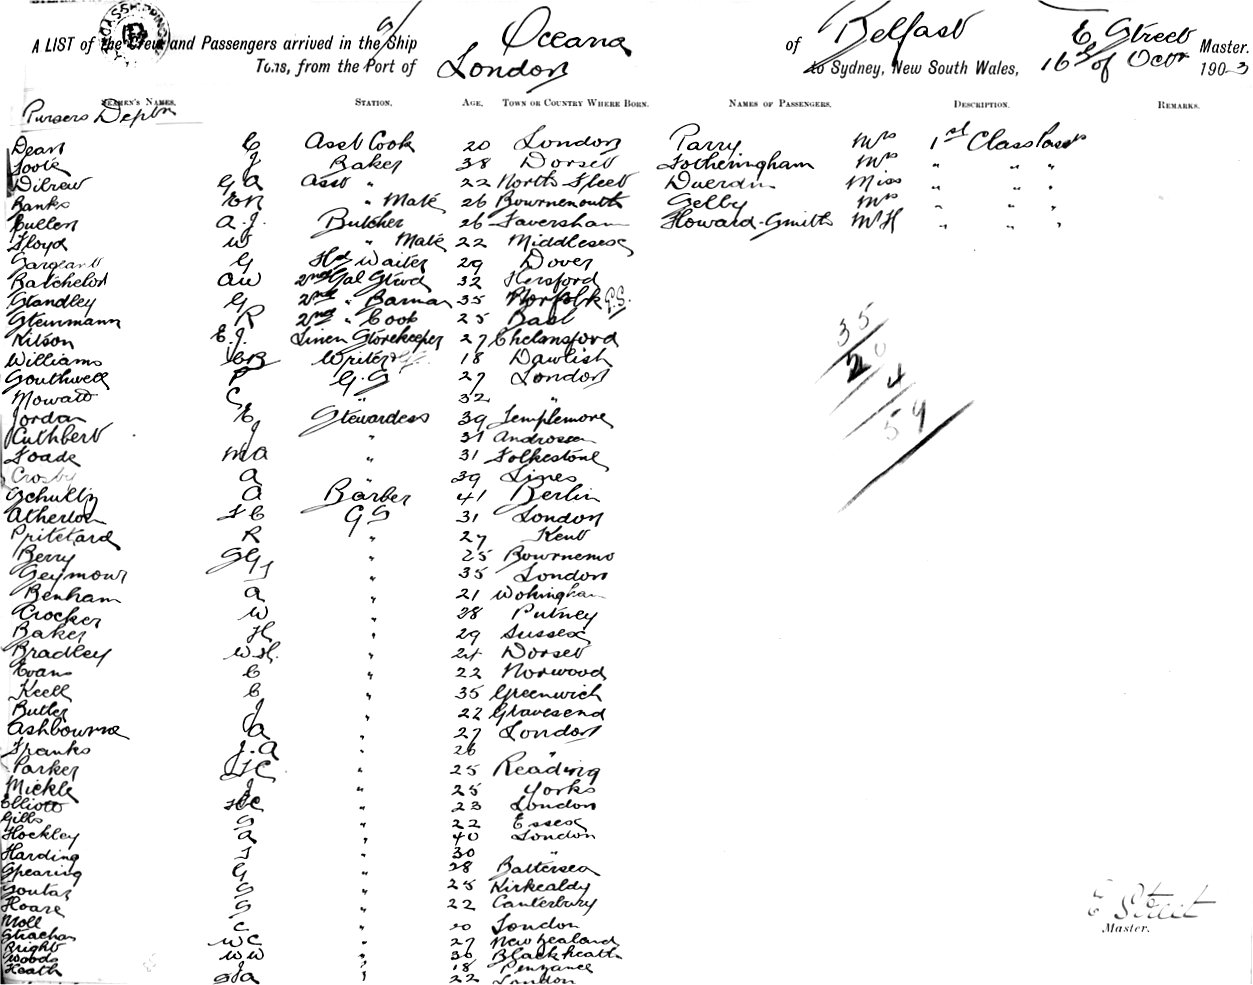 A LIST of the Crew and Passengers arrived in the S/Ship Oceana of Belfast E Street Master.
Tons, from the Port of London to Sydney, New South Wales, 16th of Octr 1903
SEAMEN'S NAMES. STATION. AGE. TOWN OR COUNTRY WHERE BORN. NAMES OF PASSENGERS. DESCRIPTION. REMARKS.
Pursers Deptn
Dean E Asst Cook 20 London Parry Mrs 1st Class Pass
J Baker 38 Dorset Fotheringham Mrs " " "
Dilrew G A Asst " 22 North Fleet Duerdin Miss " " "
Banks " Mate 26 Bournemouth Selby Mrs " " "
Bullen A. J. Butcher 26 Faversham Howard-Smith Mr H " " "
Floyd W " Mate 22 Middlesex
Sargeant G Hd Waiter 29 Dover
Batchelor AW 2nd Sal Stwd 32 Hersford
Standley G 2nd " Barman 35 Norfolk G.S.
Steinmann R 2nd " Cook 25 Basl
Kitson E. J. Linen Storekeeper 27 Chelmsford
Williams Writer 18 Dawlish
Southwell P G.S 27 London
Mowatt C " 32 "
Jordan E Stewardess 39 Templemore
Cuthbert J " 31 Androssan
Foade M A " 31 Folkestone
Crosby A " 39 Lines
Schultz A Barber 41 Berlin
Atherton F C G S 31 London
Pritchard R " 27 Kent
Berry " 25 Bournemo
Seymour J " 35 London
Benham A " 21 Wokingham
Crocker W " 28 Putney
Baker H " 29 Sussex
Bradley W.H. " 21 Dorset
Evans C " 22 Norwood
Keell C " 35 Greenwich
Butler J " 22 Gravesend
Ashbourne A " 27 London
Franks J. A " 26 "
Parker F C " 25 Reading
Mickle J " 25 Yorks
Elliott H C " 23 London
Gills S " 22 Essex
Hockley A " 40 London
Harding J " 30 "
Spearing G " 28 Battersea
Soutar S " 25 Kirkcaldy
Hoare S " 22 Canterbury
Moll C " 20 London
Strachan W C " 27 New Zealand
Right W W " 36 Blackheath
Woods " 18 Penzance
Heath A " 22 London
35
20
4
59
E Street
Master.